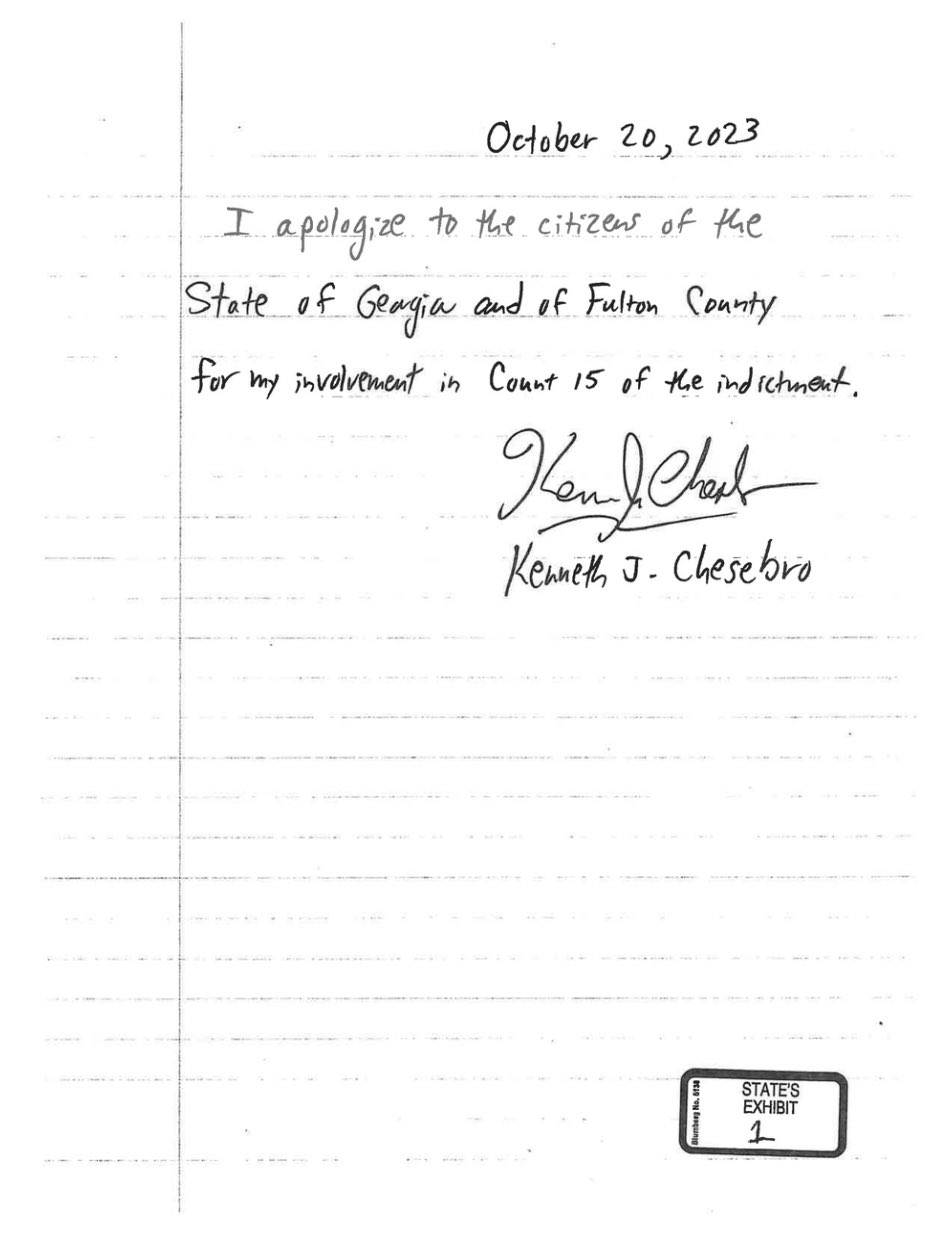 October 20, 2023
I apologize to the citizens of the
State of Georgia and of Fulton County
for my involvement in Count 15 of the indictment.
Kenneth J. Chesebro
STATE'S
EXHIBIT
1
Blumberg No. 5138